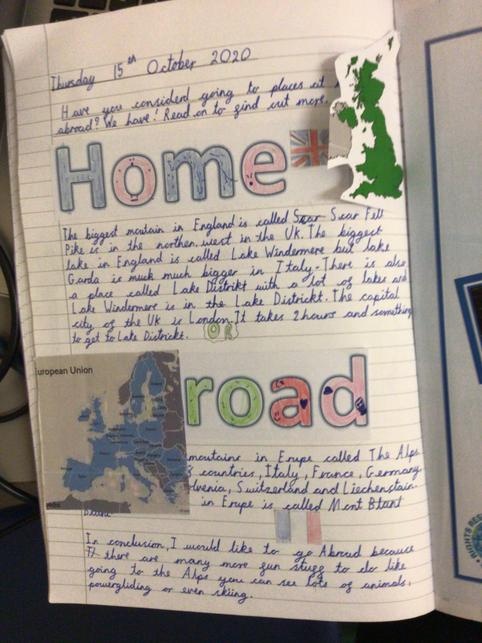 Thursday 15th October 2020
Have you considerd going to places at
abroad? We have! Read on to find out more.
Home
The biggest moutain in England is called Scar Fell
Pike is in the northen west in the UK. The biggest
lake in England is called Lake Windermere but lake
Garda is much much bigger in Italy. There is also
a place called Lake Districkt with a lot of lakes and
Lake Windermere is in the Lake Districkt. The capital
city of the UK is London. It takes 2 hours and something
to get to Lake Districkt.
OR
European Union
road
moutains in Erupe called The Alps
countries, Italy, France, Germany
Switzerland and Liechenstain.
in Erupe is called Mont Blant
In conclusion, I would like to go Abroad because
there are many more fun stuff to do like
going to the Alps you can see lots of animals,
powergliding or even skiing.
RIGHTS